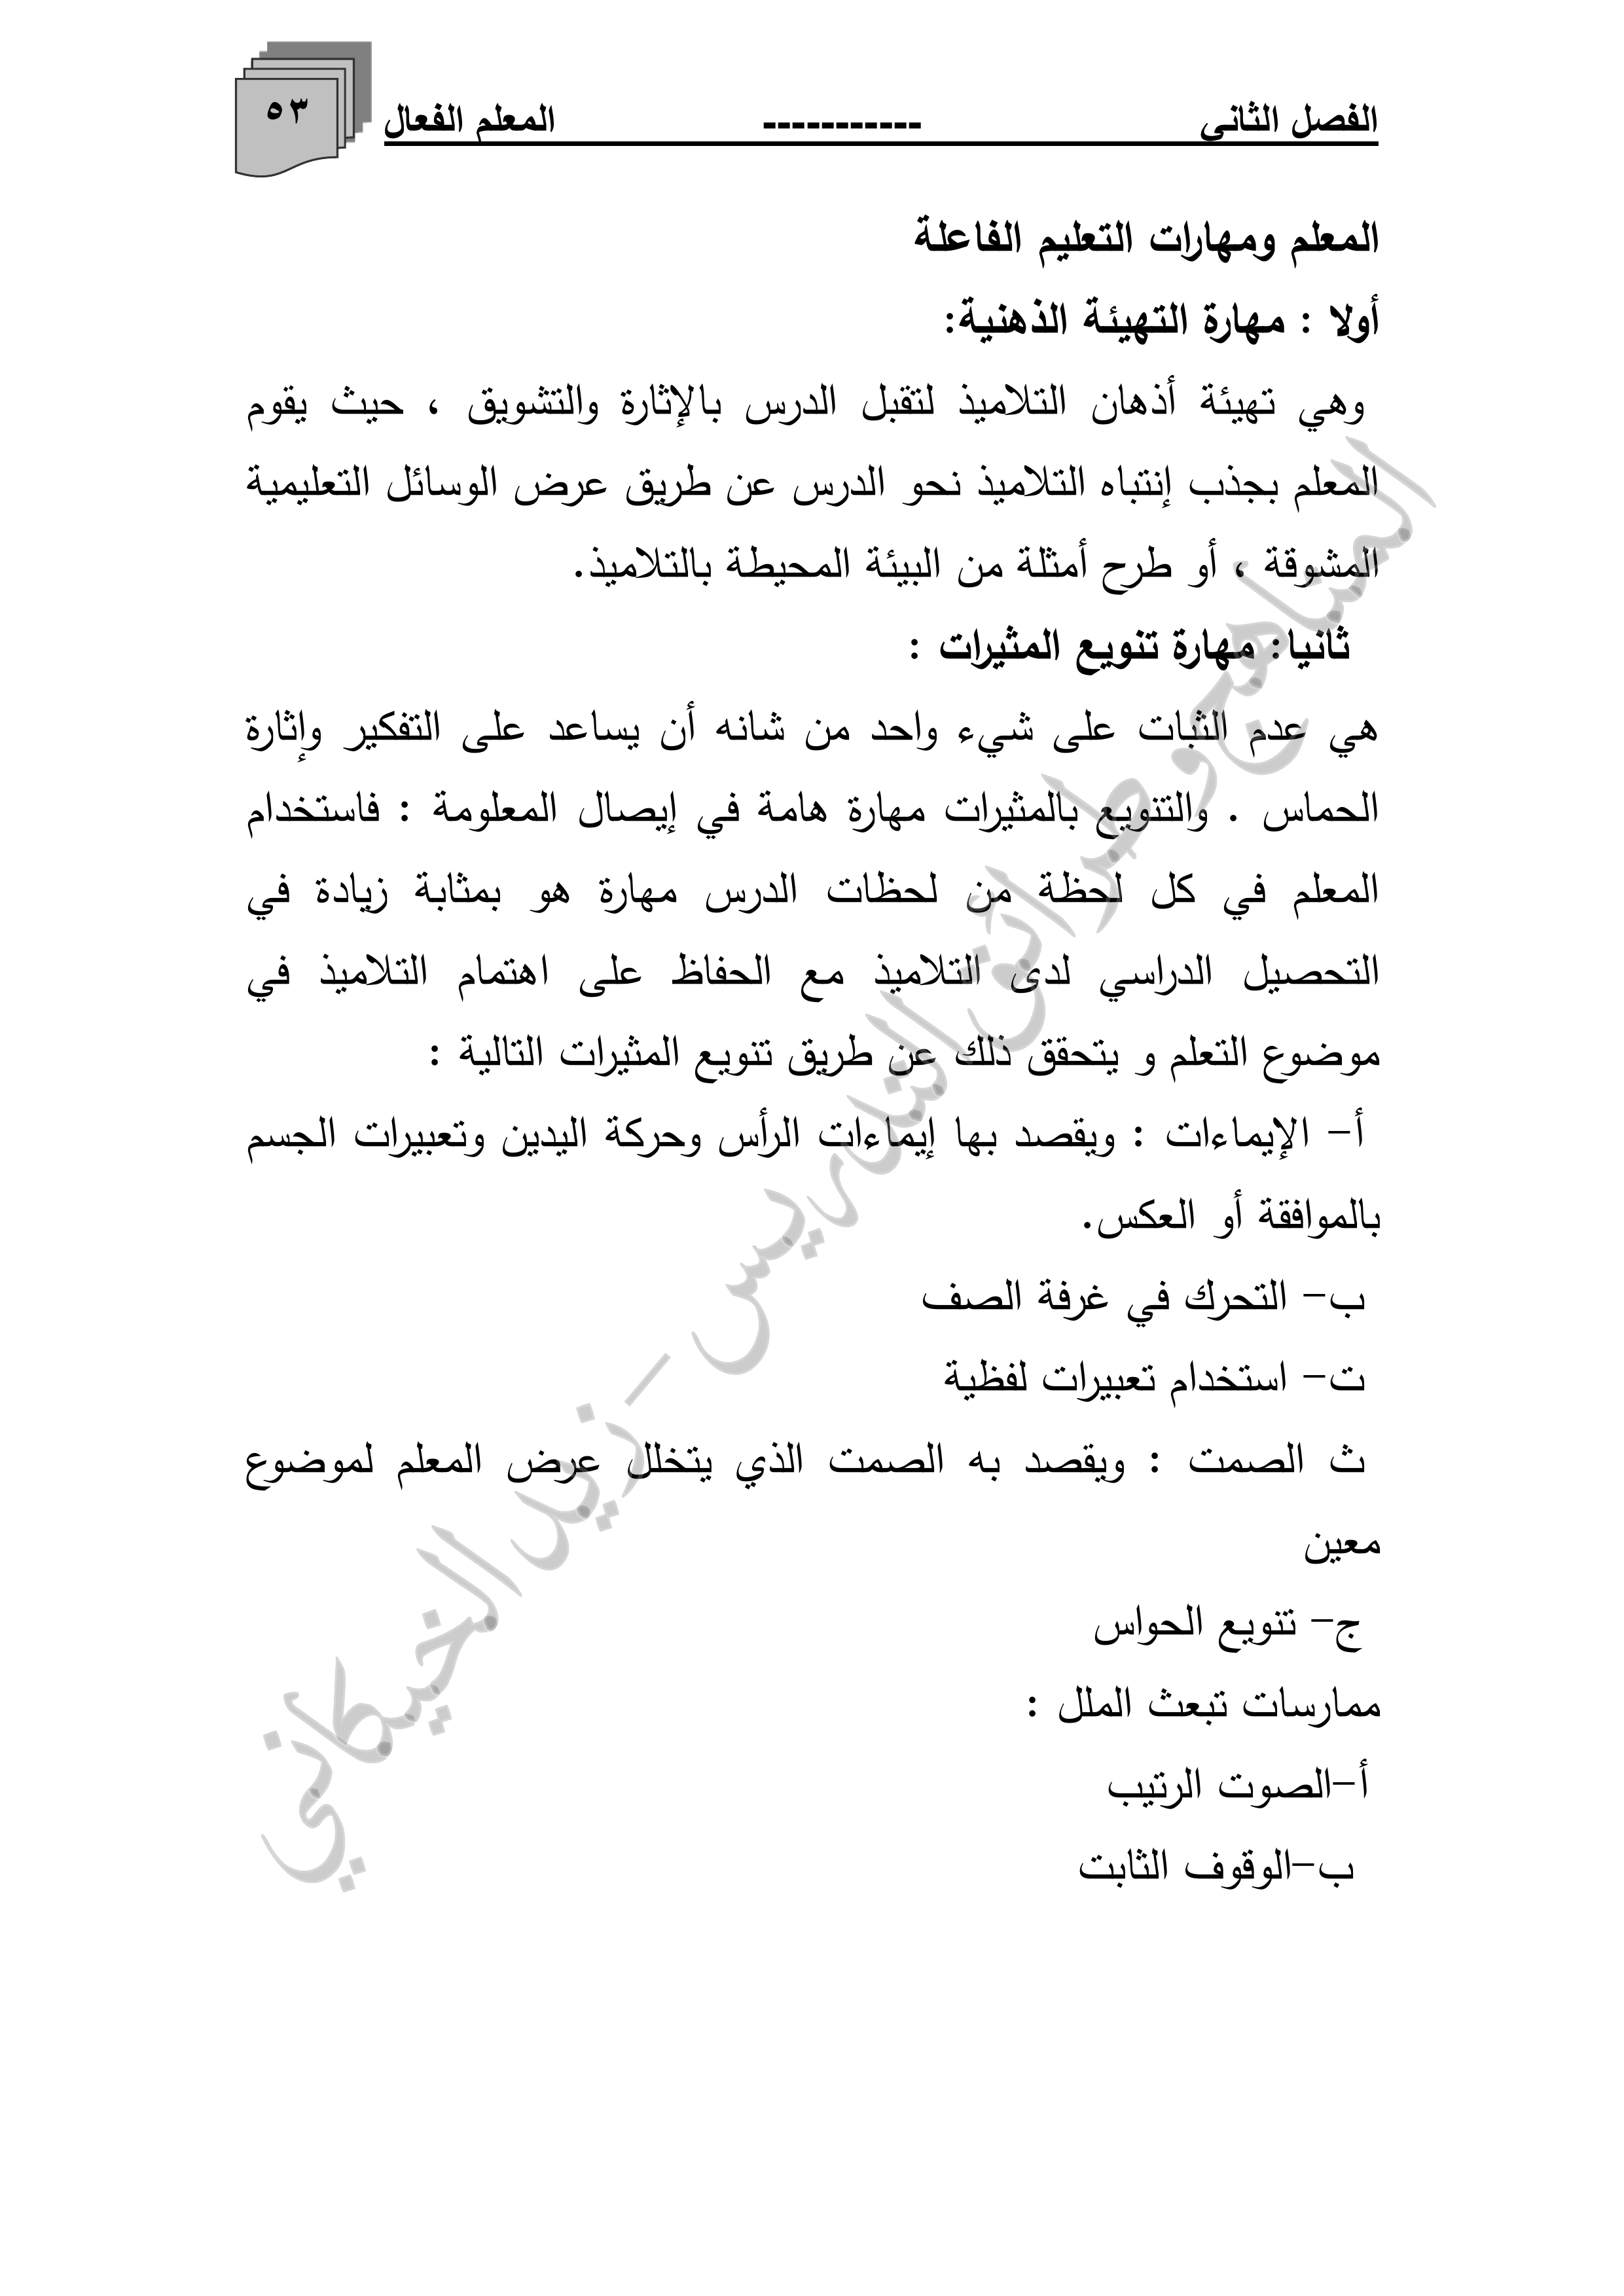 الفصل الثاني ----------- المعلم الفعال
٥٣
المعلم ومهارات التعليم الفاعلة
أولا : مهارة التهيئة الذهنية:
وهي تهيئة أذهان التلاميذ لتقبل الدرس بالإثارة والتشويق ، حيث يقوم
المعلم بجذب إنتباه التلاميذ نحو الدرس عن طريق عرض الوسائل التعليمية
المشوقة ، أو طرح أمثلة من البيئة المحيطة بالتلاميذ.
ثانيا: مهارة تنويع المثيرات :
هي عدم الثبات على شيء واحد من شانه أن يساعد على التفكير وإثارة
الحماس . والتنويع بالمثيرات مهارة هامة في إيصال المعلومة : فاستخدام
المعلم في كل لحظة من لحظات الدرس مهارة هو بمثابة زيادة في
التحصيل الدراسي لدى التلاميذ مع الحفاظ على اهتمام التلاميذ في
موضوع التعلم و يتحقق ذلك عن طريق تنويع المثيرات التالية :
أ- الإيماءات : ويقصد بها إيماءات الرأس وحركة اليدين وتعبيرات الجسم
بالموافقة أو العكس.
ب- التحرك في غرفة الصف
ت- استخدام تعبيرات لفظية
ث الصمت : ويقصد به الصمت الذي يتخلل عرض المعلم لموضوع
معين
ج- تنويع الحواس
ممارسات تبعث الملل :
أ-الصوت الرتيب
ب-الوقوف الثابت
المناهج وطرائق التدريس - زيد الخيكاني